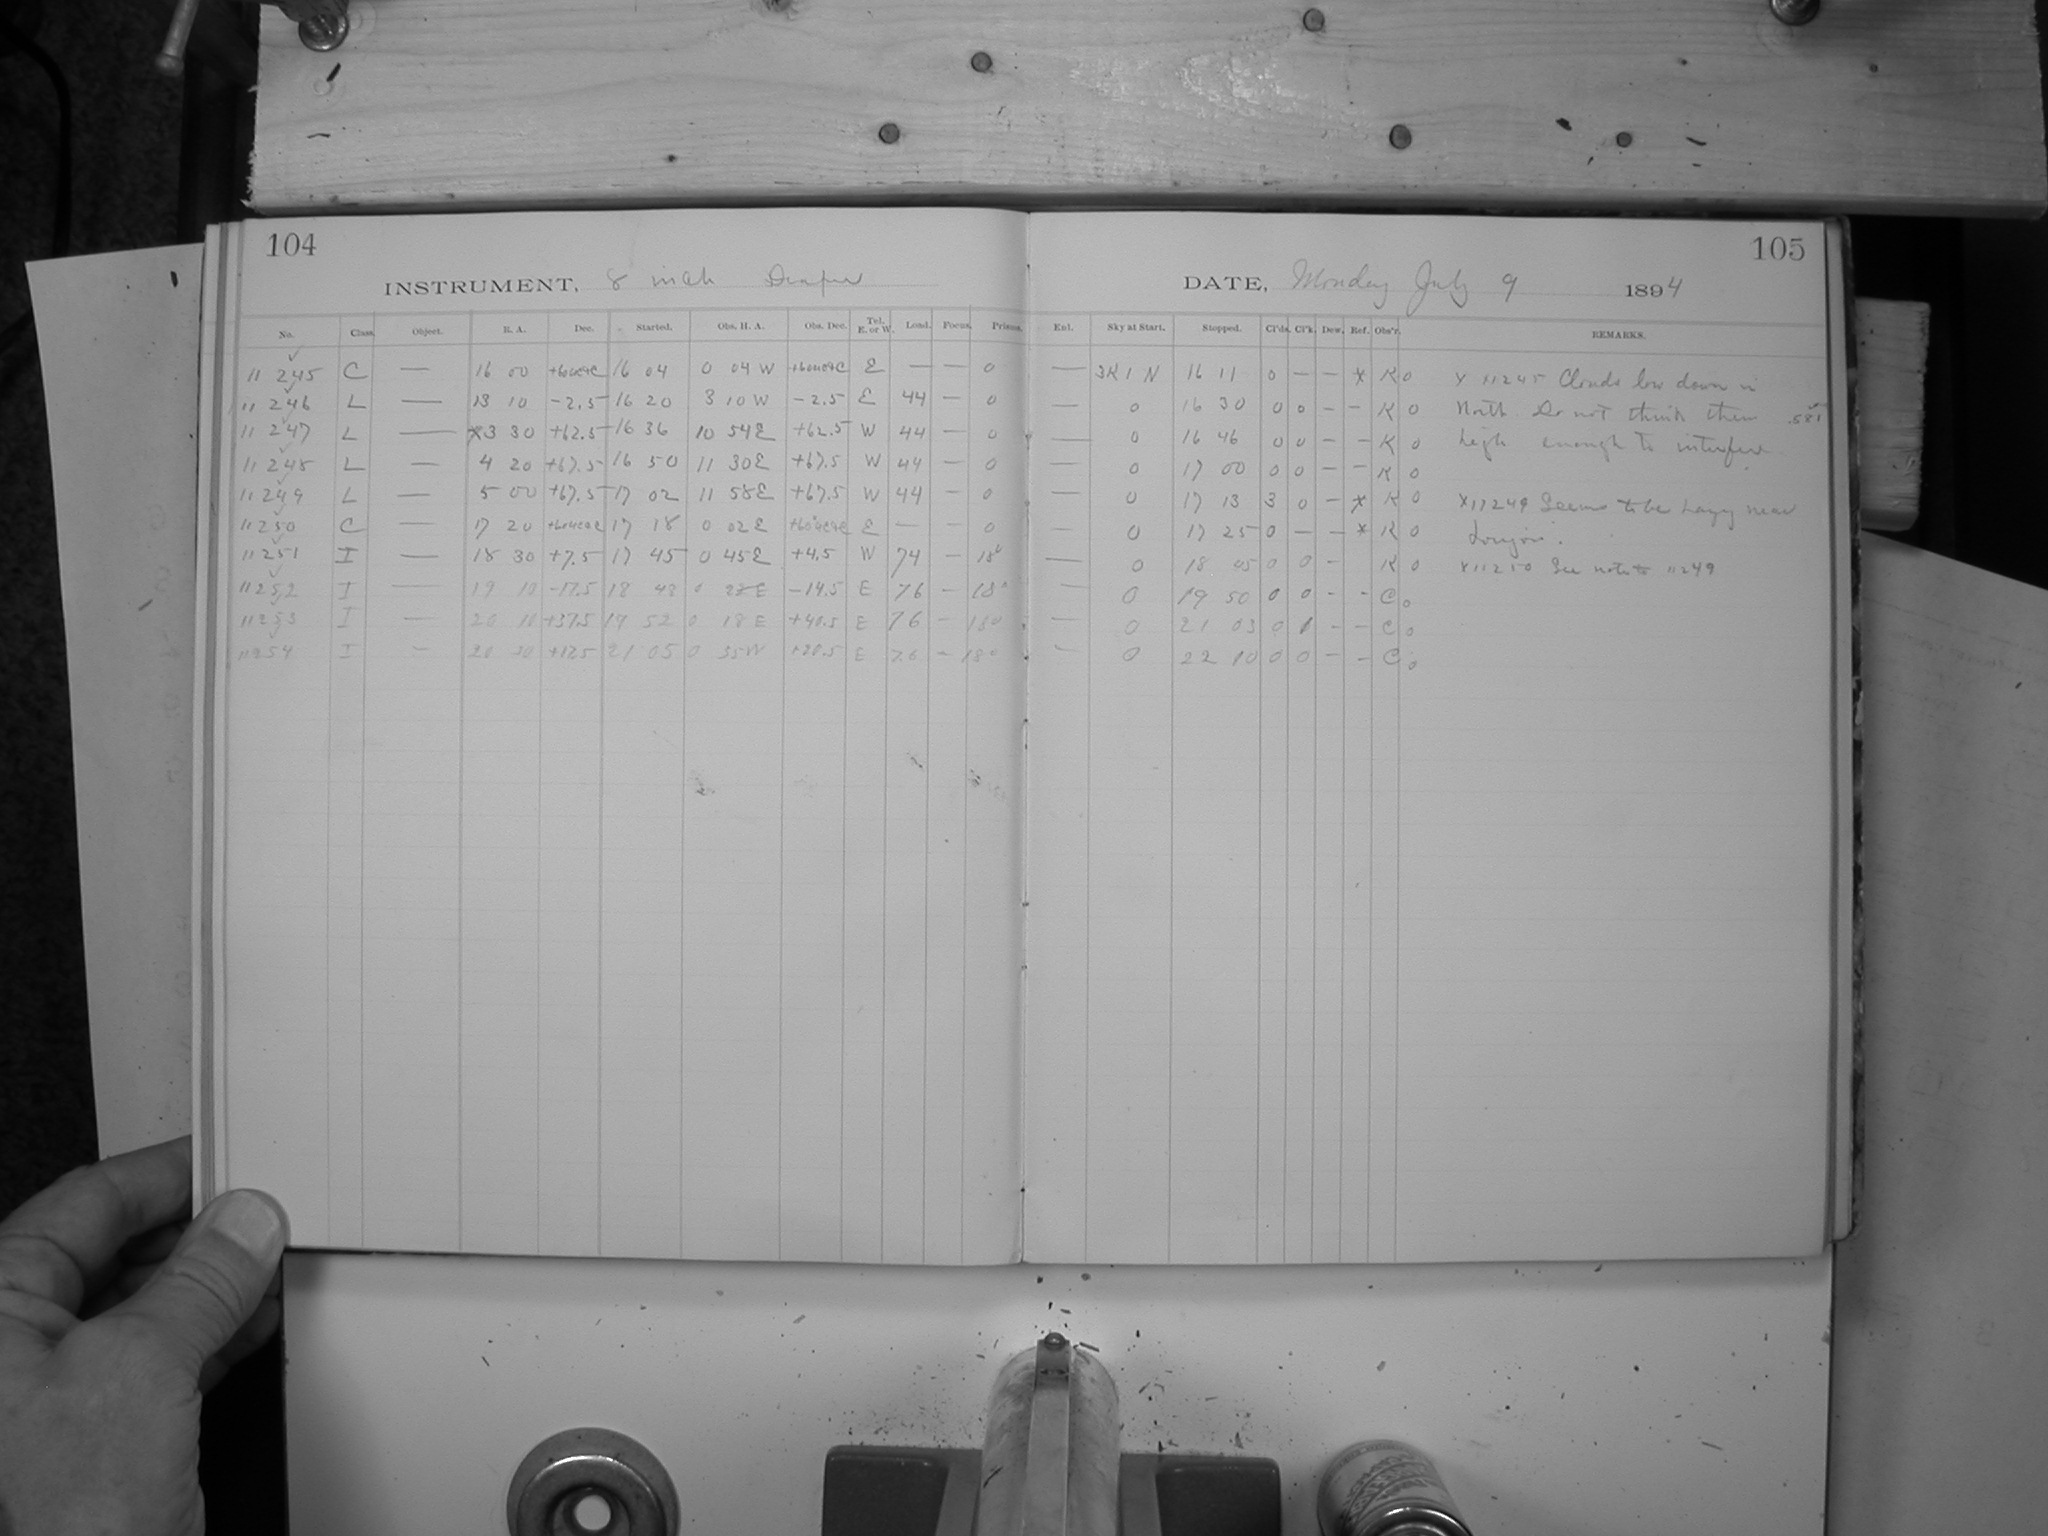 104
INSTRUMENT, 8 inch Draper
No. Class. Object. R. A. Dec. Started. Obs. H. A. Obs. Dec. Tel. E. or W. Lond. Focus. Prisms.
11 245 C — 16 00 16 04 0 04 W E — — 0
11 246 L — 13 10 -2.5 16 20 3 10 W -2.5 E 44 — 0
11 247 L — 3 30 +62.5 16 36 10 54 E +62.5 W 44 — 0
11 248 L — 4 20 +67.5 16 50 11 30 E +67.5 W 44 — 0
11 249 L — 5 00 +67.5 17 02 11 58 E +67.5 W 44 — 0
11250 C — 17 20 17 18 0 02 E E — — 0
11251 I — 18 30 +7.5 17 45 0 45 E +4.5 W 74 — 18°
11252 I — 19 10 -17.5 18 48 0 22 E -14.5 E 76 — 18°
11253 I — 20 10 +37.5 19 52 0 18 E +40.5 E 76 — 18°
11254 I — 20 30 +17.5 21 05 0 35 W +20.5 E 76 — 18°
105
DATE, Monday July 9 1894
Enl. Sky at Start. Stopped. Cl'ds. Cl'k. Dew. Ref. Obs'r. REMARKS.
— 3K1N 16 11 0 — — x K 0 x 11245 Clouds low down in
— 0 16 30 0 0 - - K 0 North. Do not think them .581
— 0 16 46 0 0 - - K 0 high enough to interfere
— 0 17 00 0 0 - - K 0
— 0 17 13 3 0 - x K 0 x11249 Seems to be hazy near
— 0 17 25 0 — - x K 0
— 0 18 05 0 0 - K 0 x11250 See note to 11249
— 0 19 50 0 0 - - C 0
— 0 21 03 0 1 - - C 0
— 0 22 10 0 0 - - C 0